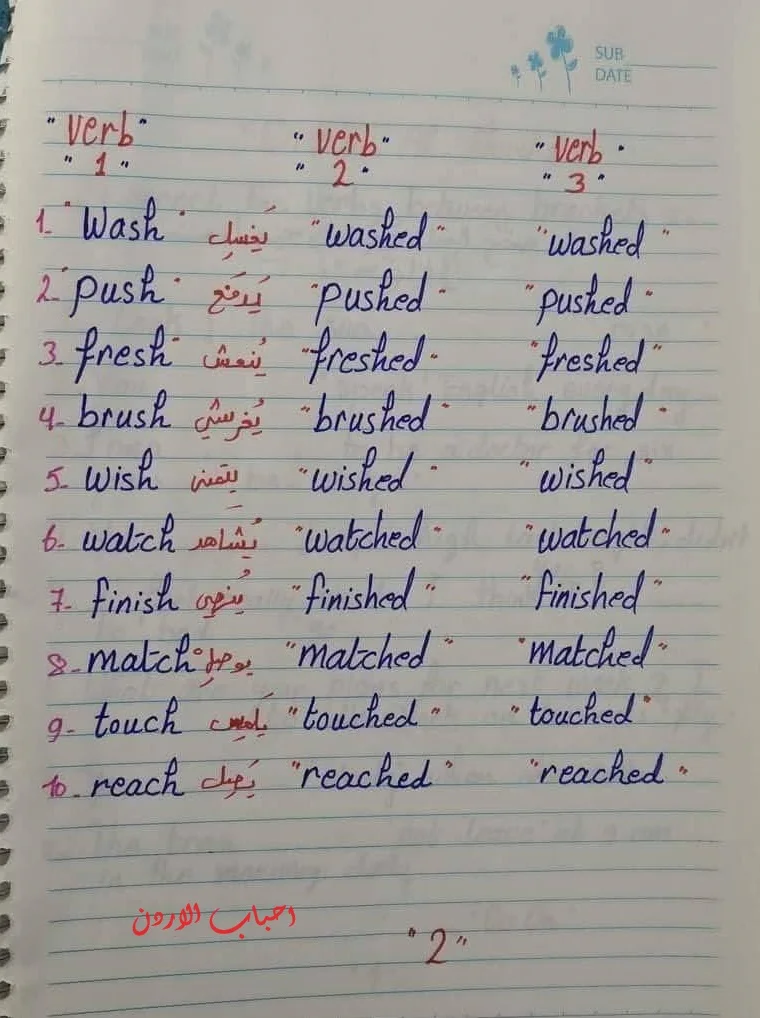 SUB
DATE
"Verb" "Verb" "Verb"
"1" "2" "3"
1- "Wash" يَغسِل "washed" "washed"
2- "push" يَدفع "pushed" "pushed"
3- fresh" يُنعش "freshed" "freshed"
4- brush يُفرشي "brushed" "brushed"
5- wish يتمنى "wished" "wished"
6- watch يُشاهد "watched" "watched"
7- finish يُنهي "finished" "finished"
8- match يوصل "matched" "matched"
9- touch يَلمس "touched" "touched"
10- reach يَصِل "reached" "reached"
احباب الاردن
"2"